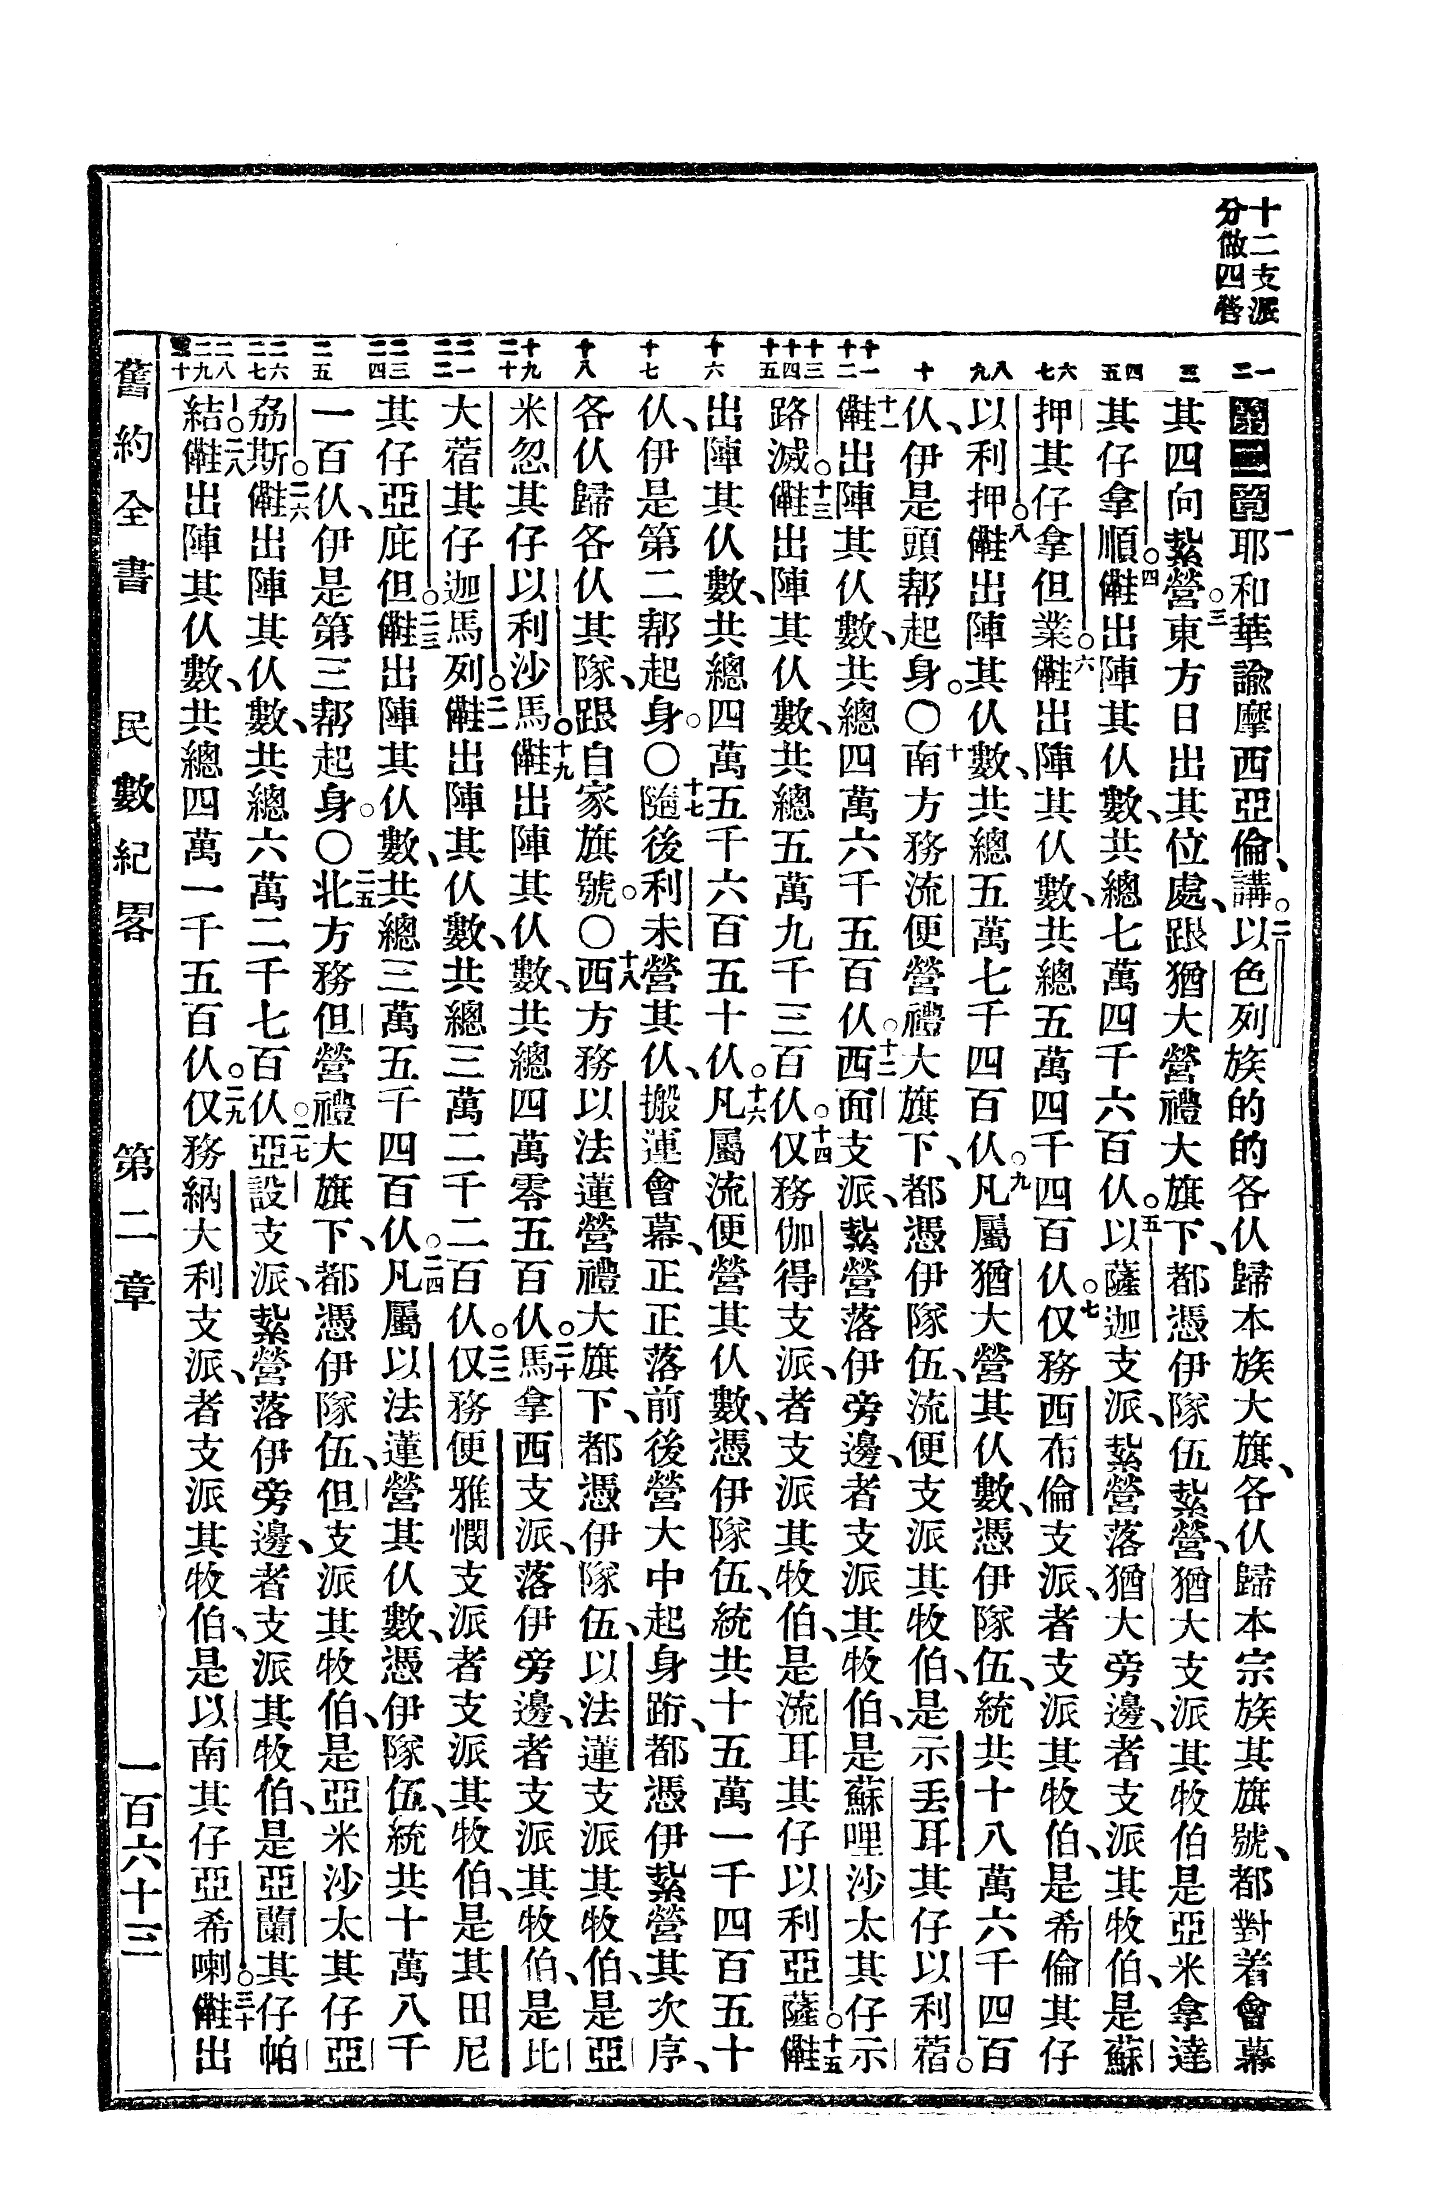 十二支派
分做四營
一 二
三
四 五
六 七
八 九
十
十一 十二
十三 十四 十五
十六
十七
十八
十九 二十
二一 二二
二三 二四
二五
二六 二七
二八 二九 三十
第二章一耶和華諭摩西亞倫、講。二以色列族的的各仈歸本族大旗、各仈歸本宗族其旗號、都對着會幕
其四向紮營。三東方日出其位處、跟猶大營禮大旗下、都憑伊隊伍紮營、猶大支派其牧伯是亞米拿達
其仔拿順。四㑚出陣其仈數、共總七萬四千六百仈。五以薩迦支派、紮營落猶大旁邊、者支派其牧伯、是蘇
押其仔拿但業。六㑚出陣其仈數、共總五萬四千四百仈。七仅務西布倫支派、者支派其牧伯、是希倫其仔
以利押。八㑚出陣其仈數、共總五萬七千四百仈。九凡屬猶大營其仈數、憑伊隊伍、統共十八萬六千四百
仈、伊是頭幫起身。〇十南方務流便營禮大旗下、都憑伊隊伍、流便支派其牧伯、是示丢耳其仔以利蓿。
十一㑚出陣其仈數、共總四萬六千五百仈。十二西面支派、紮營落伊旁邊、者支派其牧伯、是蘇哩沙太其仔示
路滅。十三㑚出陣其仈數、共總五萬九千三百仈。十四仅務伽得支派、者支派其牧伯、是流耳其仔以利亞薩。十五㑚
出陣其仈數、共總四萬五千六百五十仈。十六凡屬流便營其仈數、憑伊隊伍、統共十五萬一千四百五十
仈、伊是第二幫起身。〇十七隨後利未營其仈、搬運會幕、正正落前後營大中起身跕、都憑伊紮營其次序、
各仈歸各仈其隊、跟自家旗號。〇十八西方務以法蓮營禮大旗下、都憑伊隊伍、以法蓮支派其牧伯、是亞
米忽其仔以利沙馬。十九㑚出陣其仈數、共總四萬零五百仈。二十馬拿西支派、落伊旁邊、者支派其牧伯、是比
大蓿其仔迦馬列。二一㑚出陣其仈數、共總三萬二千二百仈。二二仅務便雅憫支派者支派其牧伯、是其田尼
其仔亞庇但。二三㑚出陣其仈數、共總三萬五千四百仈。二四凡屬以法蓮營其仈數、憑伊隊伍、統共十萬八千
一百仈、伊是第三幫起身。〇二五北方務但營禮大旗下、都憑伊隊伍、但支派其牧伯、是亞米沙太其仔亞
希以色。二六㑚出陣其仈數、共總六萬二千七百仈。二七亞設支派、紮營落伊旁邊、者支派其牧伯、是亞蘭其仔帕
結。二八㑚出陣其仈數、共總四萬一千五百仈。二九仅務納大利支派、者支派其牧伯、是以南其仔亞希喇。三十㑚出
舊約全書　民數紀畧　第二章　一百六十三